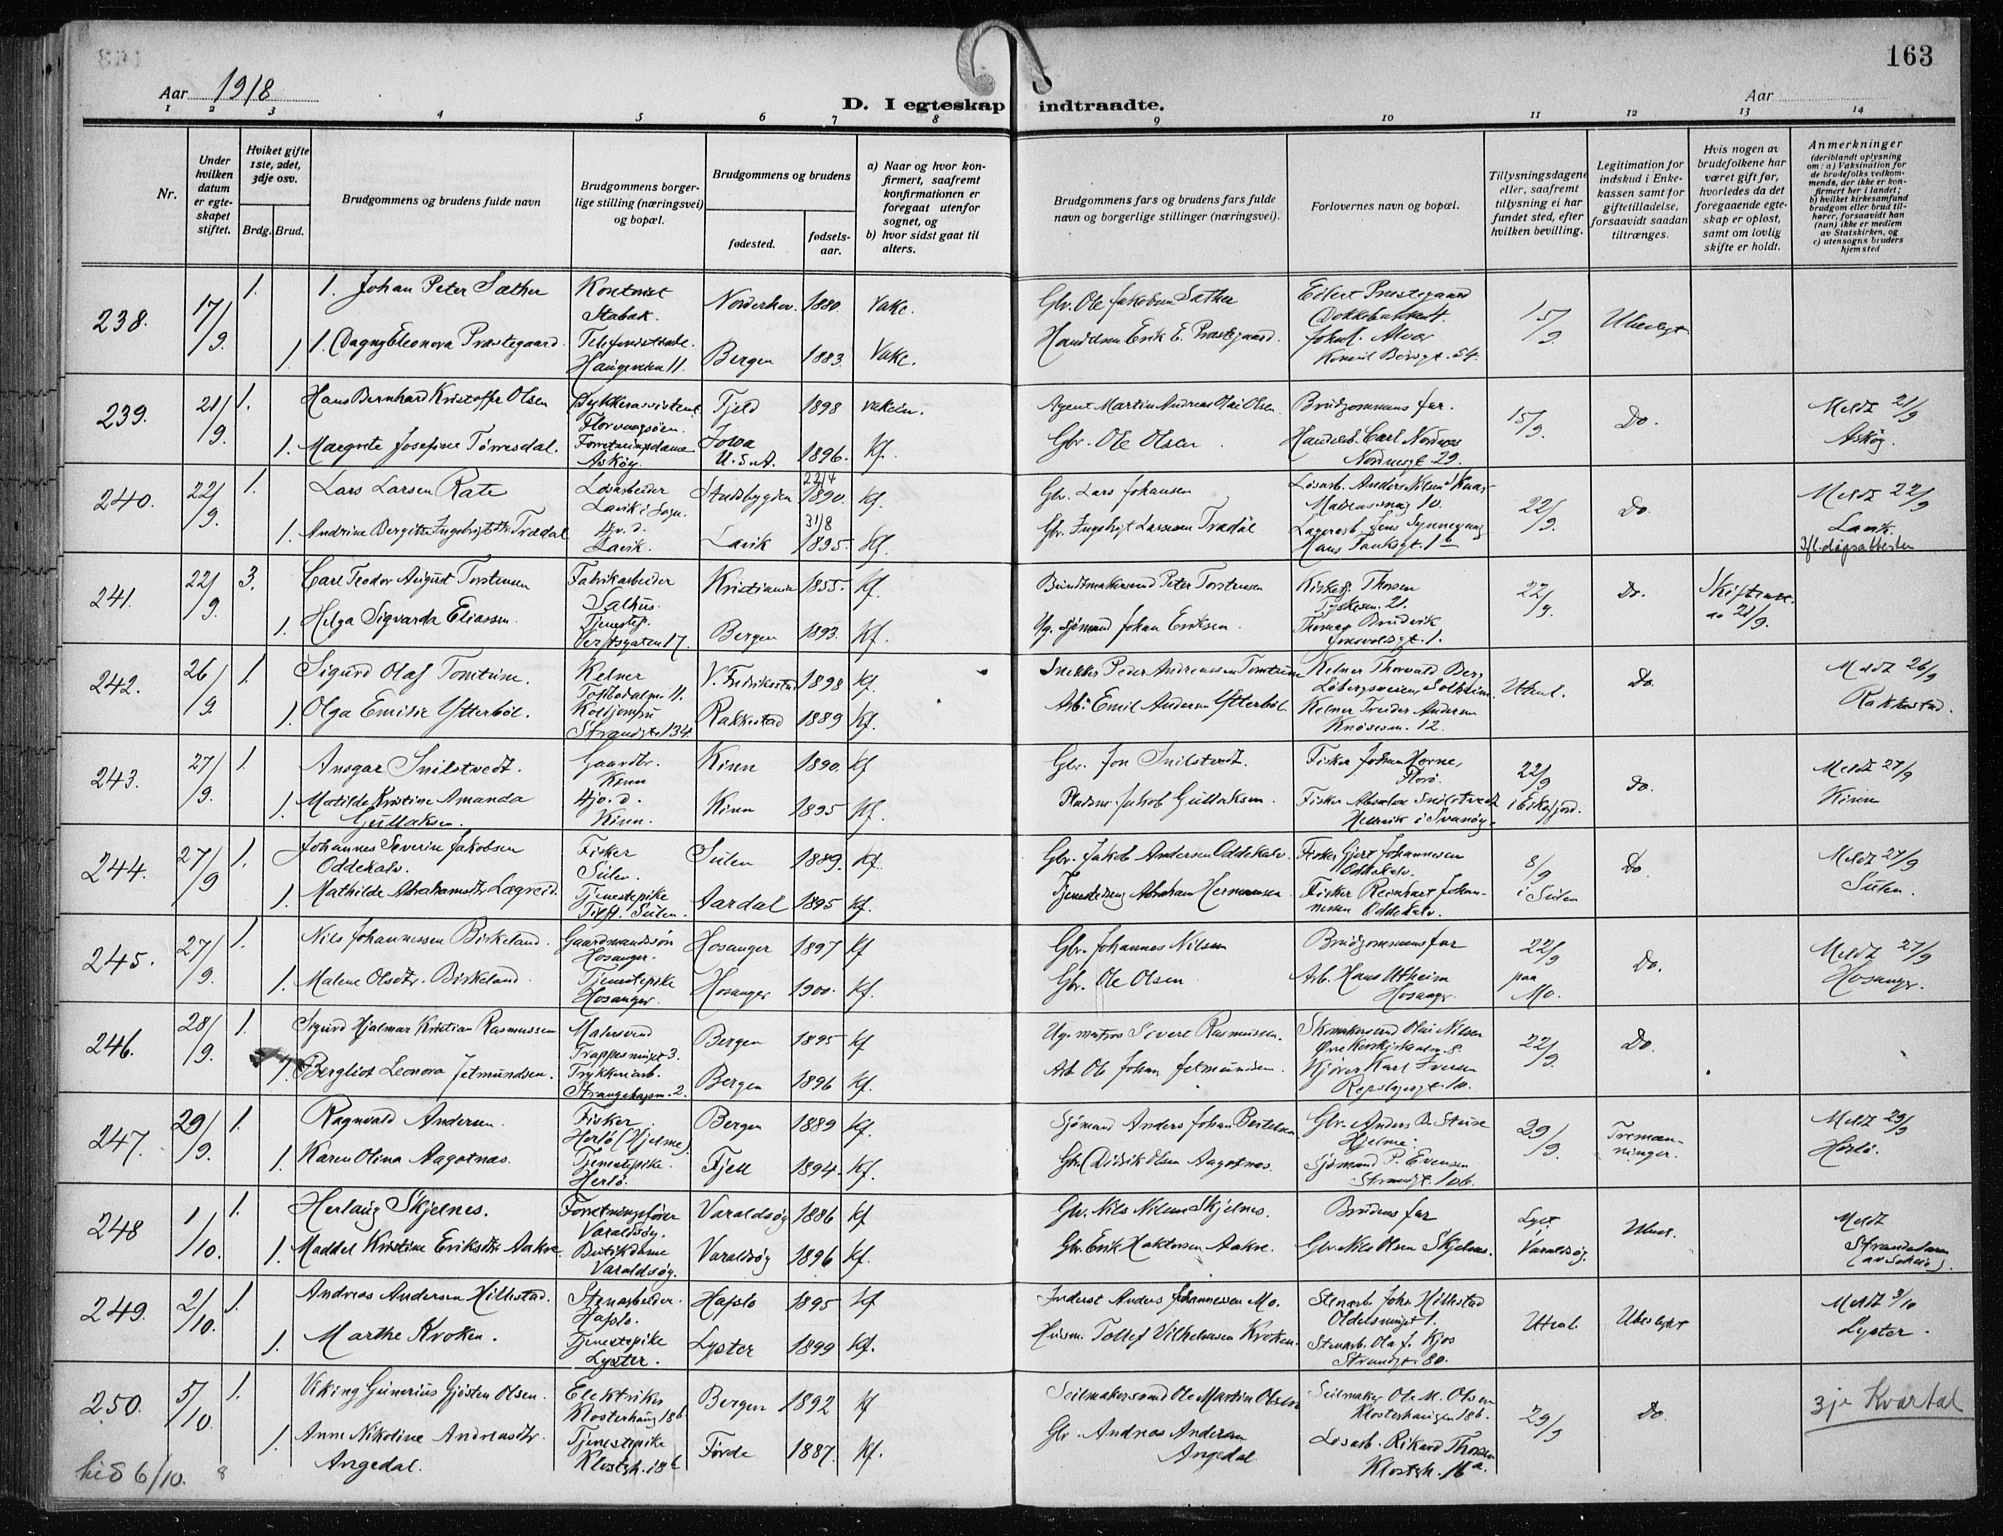 163
Aar 1918
Aar
D. I egteskap indtraadte.
1 2 3 4 5 6 7 8 9 10 11 12 13 14
Nr.
Under hvilken datum er egteskapet stiftet.
Hviket gifte 1ste, 2det, 3dje osv.
Brdg. Brud.
Brudgommens og brudens fulde navn
Brudgommens borgerlige stilling (næringsvei) og bopæl.
Brudgommens og brudens
fødested.
fødselsaar.
a) Naar og hvor konfirmert, saafremt konfirmationen er foregaat utenfor sognet, og
b) hvor sidst gaat til alters.
Brudgommens fars og brudens fars fulde navn og borgerlige stillinger (næringsvei).
Forlovernes navn og bopæl.
Tillysningsdagene eller, saafremt tillysning ei har fundet sted, efter hvilken bevilling.
Legitimation for indskud i Enkekassen samt for giftetilladelse, forsaavidt saadan tiltrænges.
Hvis nogen av brudefolkene har været gift før, hvorledes da det foregaaende egteskap er opløst, samt om lovlig skifte er holdt.
Anmerkninger
(deriblandt oplysning om: a) Vaksination for de brudefolks vedkommende, der ikke er konfirmert her i landet; b) hvilket kirkesamfund brudgom eller brud tilhører, forsaavidt han (hun) ikke er medlem av Statskirken, og c) utensogns bruders hjemsted
238. 17/9 1. 1. Johan Peter Sæther Kontorist Stabæk. Norderhov. 1880. Vake. Gbr. Ole Jakobsen Sæther Eilert Præstegaard 15/9 Ubeslegt
1. 1. Dagny Eleonora Præstegaard. Bergen 1883 Vake. Erik E. Præstegaard. Johs. Alver
239. 21/9. 1. Hans Bernhard Kristoffer Olsen Fjeld 1898 Agent Martin Andreas Olai Olsen. Brudgommens far. 15/9. Do. Meldt 21/9 Askøy
1. Margrete Josefine Tørresdal. Forretningsdame Askøy. Iowa U.S.A. 1896. Kf. Gbr. Ole Olsen. Handelsb. Carl Nordnes Nordnesgt 29.
240. 22/9. 1. Lars Larsen Rate Løsarbeider Lavik i Sogn. Stadsbygden 22/4 1890. Kf. Gbr. Lars Johansen 22/9. Do. Meldt 22/9 Lavik
1. Andrine Bergitte Ingebrigtsdtr Trædal Lavik. Lavik 31/8 1895. Kf. Gbr. Ingebrigt Larssen Trædal Hans Tanksgt. 1b
241. 22/9. 3. Carl Teodor August Torstensen Fabrikarbeider Salhus. Kristiania 1855. Kf. Buntmakersvend Peter Torstensen 22/9. Do. 21/9.
1. Helga Sigvarda Eliassen. Tjenestep. Verftsgaten 17. Bergen 1893. Kf. Ug. Sjømand Johan Eriksen.
242. 26/9. 1. Sigurd Olaf Tomtum. Kelner V. Fredrikstad 1898 Kf. Snekker Peder Andreassen Tomtum Kelner Thorvald Berg Utenl. Do. Meldt 26/9 Rakkestad.
1. Olga Emilie Ytterbøl. Strandgt. 134. Rakkestad 1889 Kf. Arb. Emil Andersen Ytterbøl. Kelner Andersen Knøsesm. 12.
243. 27/9. 1. Ansgar Snilstvedt. Gaardbr. Kinn Kinn 1890. Kf Gbr. Jon Snilstvedt. Fisker Florø. 22/9 i Eikefjord. Do. Meldt 27/9 Kinn
1. Matilde Kristine Amanda Gullaksen. Kinn. Kinn 1895 Kf. Pladsm. Jakob Gullaksen. Fisker Absalon Snilstvedt Hellevik i Svanøy.
244. 27/9 1. Johannes Severin Jakobsen Oddekalv. Fisker Sulen. Sulen 1889. Kf. Gbr. Jakob Andersen Oddekalv. Fisker Gjert Johannessen Oddekalv. 8/9 i Sulen Do. Meldt 27/9 Sulen.
1. Mathilde Abrahamsdtr Lægreid. Tjenestepike Sulen. Aardal 1895 Kf. Abraham Hermansen. Fisker Reinhart Johannessen Oddekalv.
245. 27/9. 1. Nils Johannessen Birkeland. Gaardmandssøn Hosanger. Hosanger 1897 Kf Gbr. Johannes Nilsen Brudgommens far 22/9 paa Mo. Do. Meldt 27/9 Hosanger.
1. Malene Olsdtr. Birkeland. Tjenestepike Hosanger. Hosanger 1900. Kf. Gbr. Ole Olsen Arb. Hans Utheim Hosanger
246. 28/9. 1. Sigurd Hjalmar Kristian Rasmussen Malersvend Trappesmuget 3. Bergen 1895 Kf Ug. matros Sivert Rasmussen. Skomakersvend Olai Nilsen 22/9. Do.
1. Bergliot Leonora Jetmundsen. Bergen 1896 Kf. Arb. Ole Johan Jetmundsen Kjører Karl Iversen
247. 29/9. 1. Ragnvald Andersen. Fisker Herlø (Hjelme) Bergen 1889 Kf. Sjømand Anders Johan Bertelsen Gbr. Anders Hjelme. 29/9. Tremænninger. Meldt 29/9 Herlø.
1. Karen Olina Aagotnes. Tjenestepike. Herlø. Fjell 1894. Kf. Gbr. Didrik Olsen Aagotnes. Sjømand P. Evensen
248 1/10. 1. Herlaug Skjelnes. Forretningsfører Varaldsøy. Varaldsøy 1886 Kf Gbr. Nils Nilsen Skjelnes. Brudens far Lyst Varaldsøy. Meldt Strandebarm
1. Maddel Kristine Eriksdtr Aakre. Butikdame Varaldsøy. Varaldsøy 1896 Kf. Gbr. Erik Haktorsen Aakre. Gbr. Nils Olsen Skjelnes.
249. 2/10. 1. Andreas Andersen Hillestad. Stenarbeider. Hafslo. Hafslo 1895 Kf Inderst Anders Johannessen Mo. Stenarb. Johs Hillestad Utenl. Ubeslegtet Meldt 3/10 Lyster.
1. Marthe Kroken. Tjenestepike Lyster. Lyster 1899 Kf. Husm. Tollef Vilhelmsen Kroken. Stenarb. Ola J. Kjos Strandgt. 80.
250. 5/10. 1. Viking Gunerius Gjøsten Olsen. Elektriker Klosterhaug 18b. Bergen 1892 Kf Seilmakersvend Ole Martin Olsen Seilmaker Ole M. Olsen Klosterhaugen 18b. 29/9 Do. 3je Kvartal
1. Anne Nikoline Andreasdtr. Angedal. Tjenestepike Klosterh. 18b Førde 1887. Kf. Gbr. Andreas Andersen Angedal Løsarb. Rikard Thorsen Klosterh. 16a.
hid 6/10. 8